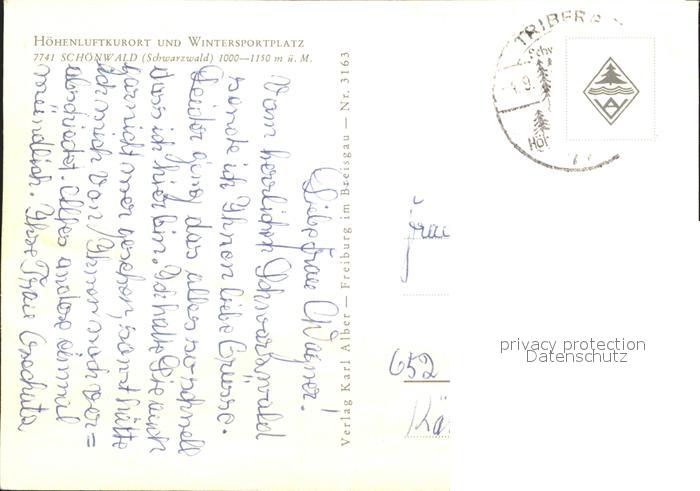 HÖHENLUFTKURORT UND WINTERSPORTPLATZ
7741 SCHÖNWALD (Schwarzwald) 1000—1150 m ü. M.
Liebe Frau Wagner!
Vom herrlichen Schwarzwald
sende ich Ihnen liebe Grüsse.
Leider ging das alles so schnell
dass ich hier bin. Ich hatte Sie auch
gar nicht mer gesehen, sonst hätte
ich mich von Ihnen noch ver=
abschiedet. Alles andere einmal
mündlich. Ihre Frau
Verlag Karl Alber — Freiburg im Breisgau — Nr. 3163
TRIBERG
Schw
9.
Höh
Frau
652
Kä
privacy protection
Datenschutz